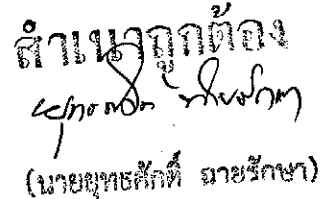 สำเนาถูกต้อง
(นายยุทธศักดิ์ ฉายรักษา)